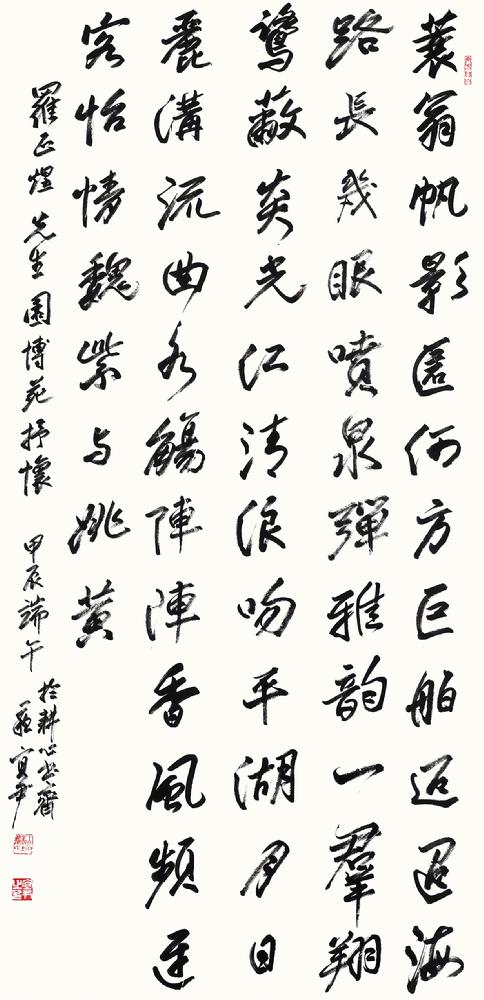 蓑翁帆影匿何方巨舶迢迢海
路長幾眼噴泉彈雅韻一羣翔
鷺蔽炎光江清浪吻平湖月日
麗溝流曲水觴陣陣香風頻迓
客怡情魏紫与姚黄
羅正煌先生園博苑抒懷 甲辰端午
於耕心書齋